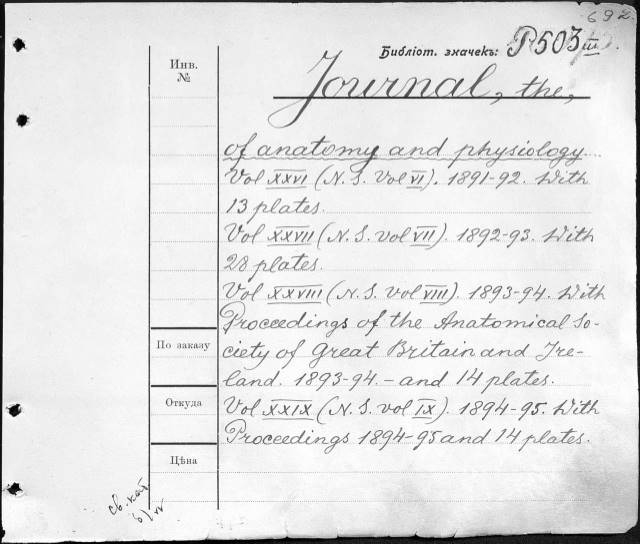 692
Библiот. значекъ: P503 III.
Инв.
№
Journal, the,
of anatomy and physiology....
Vol XXVI (N. S. Vol VI). 1891-92. With
13 plates.
Vol XXVII (N. S. vol VII). 1892-93. With
28 plates.
Vol XXVIII (N. S. vol VIII). 1893-94. With
Proceedings of the Anatomical So-
ciety of Great Britain and Ire-
land. 1893-94. - and 14 plates.
Vol XXIX (N. S. vol IX). 1894-95. With
Proceedings 1894-95 and 14 plates.
По заказу
Откуда
Цѣна
св. кат